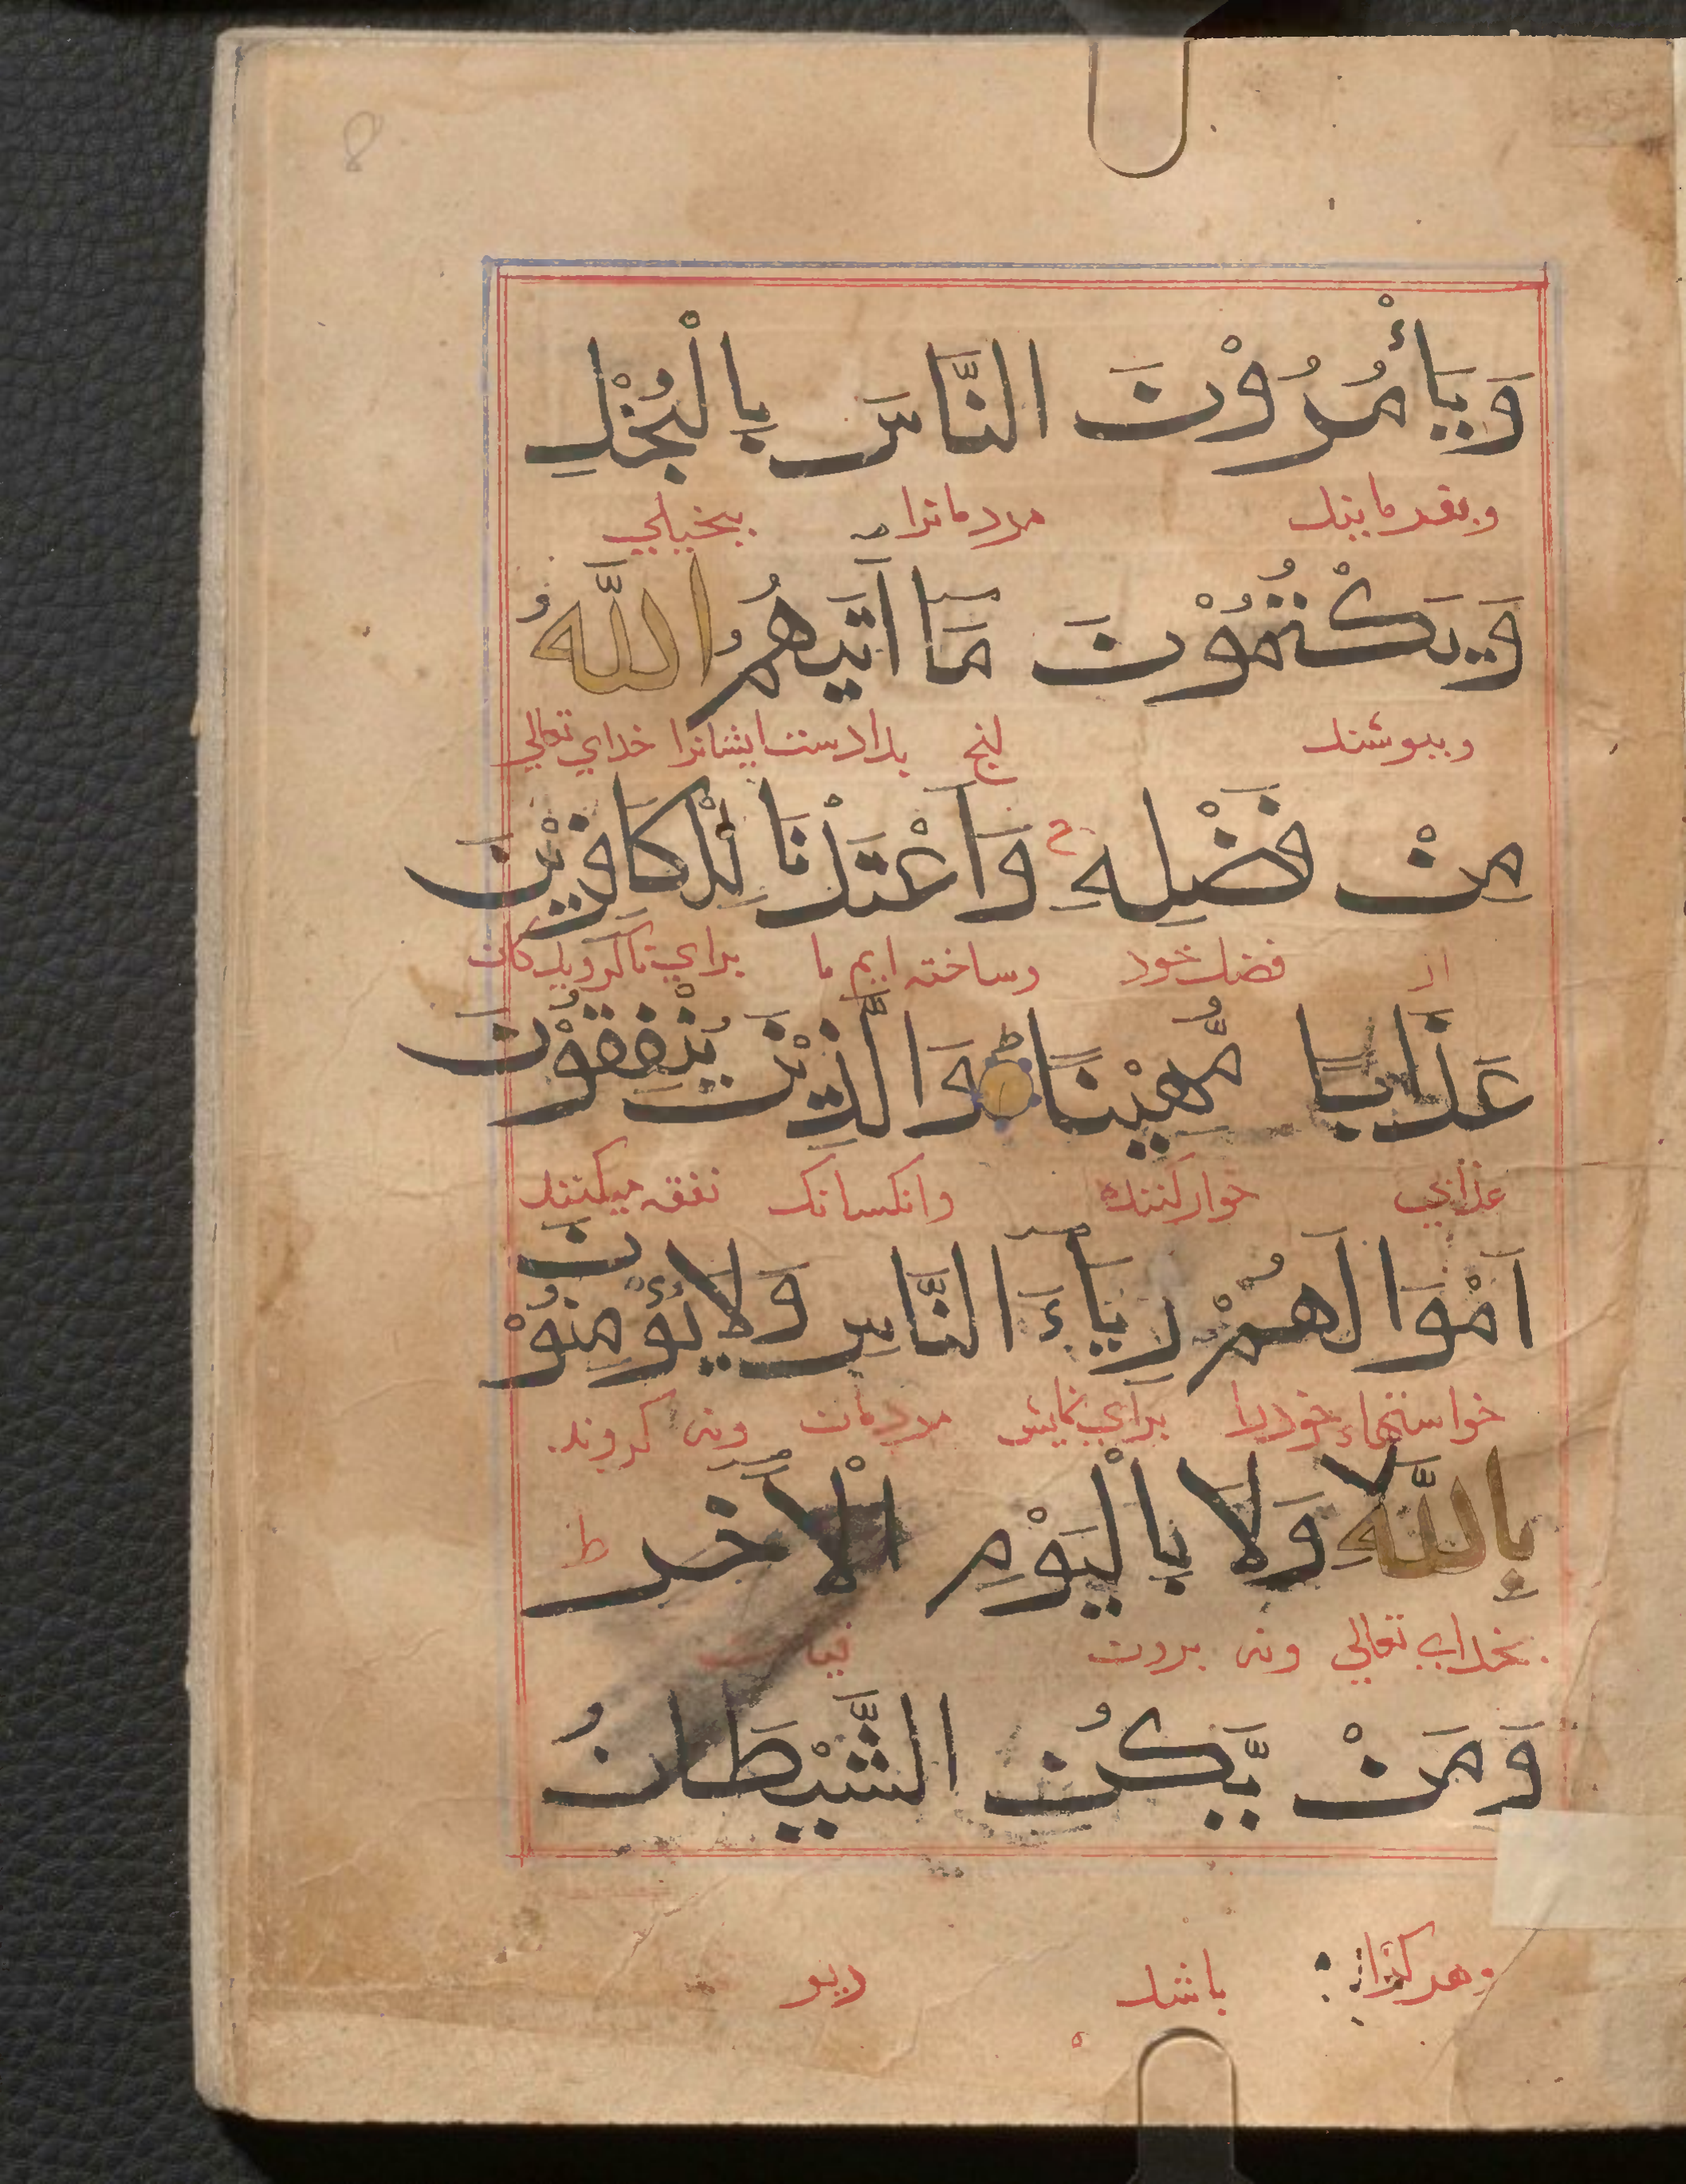 8
وَيَأْمُرُوْنَ النَّاسَ بِالْبُخْلِ
وبفرمايند مردمانرا ببخيلي
وَيَكْتُمُوْنَ مَا اٰتَيهُمُ اللّٰهُ
وبپوشند انچ بدادست ايشانرا خداي تعالي
مِنْ فَضْلِهٖ ج وَاَعْتَدْنَا لِلْكَافِرِيْنَ
از فضل خود وساخته ايم ما براي ناگرويدكان
عَذَابًا مُّهِيْنًا وَالَّذِيْنَ يُنْفِقُوْنَ
عذابي خواركننده وانكسانك نفقه ميكنند
اَمْوَالَهُمْ رِيَاءَ النَّاسِ وَلَا يُؤْمِنُوْنَ
خواستهاء خودرا براي نمايش مردمان ونه گروند
بِاللّٰهِ وَلَا بِالْيَوْمِ الْاٰخِرِ ط
بخداي تعالي ونه بروز قيامت
وَمَنْ يَّكُنِ الشَّيْطَانُ
وهركرا باشد ديو